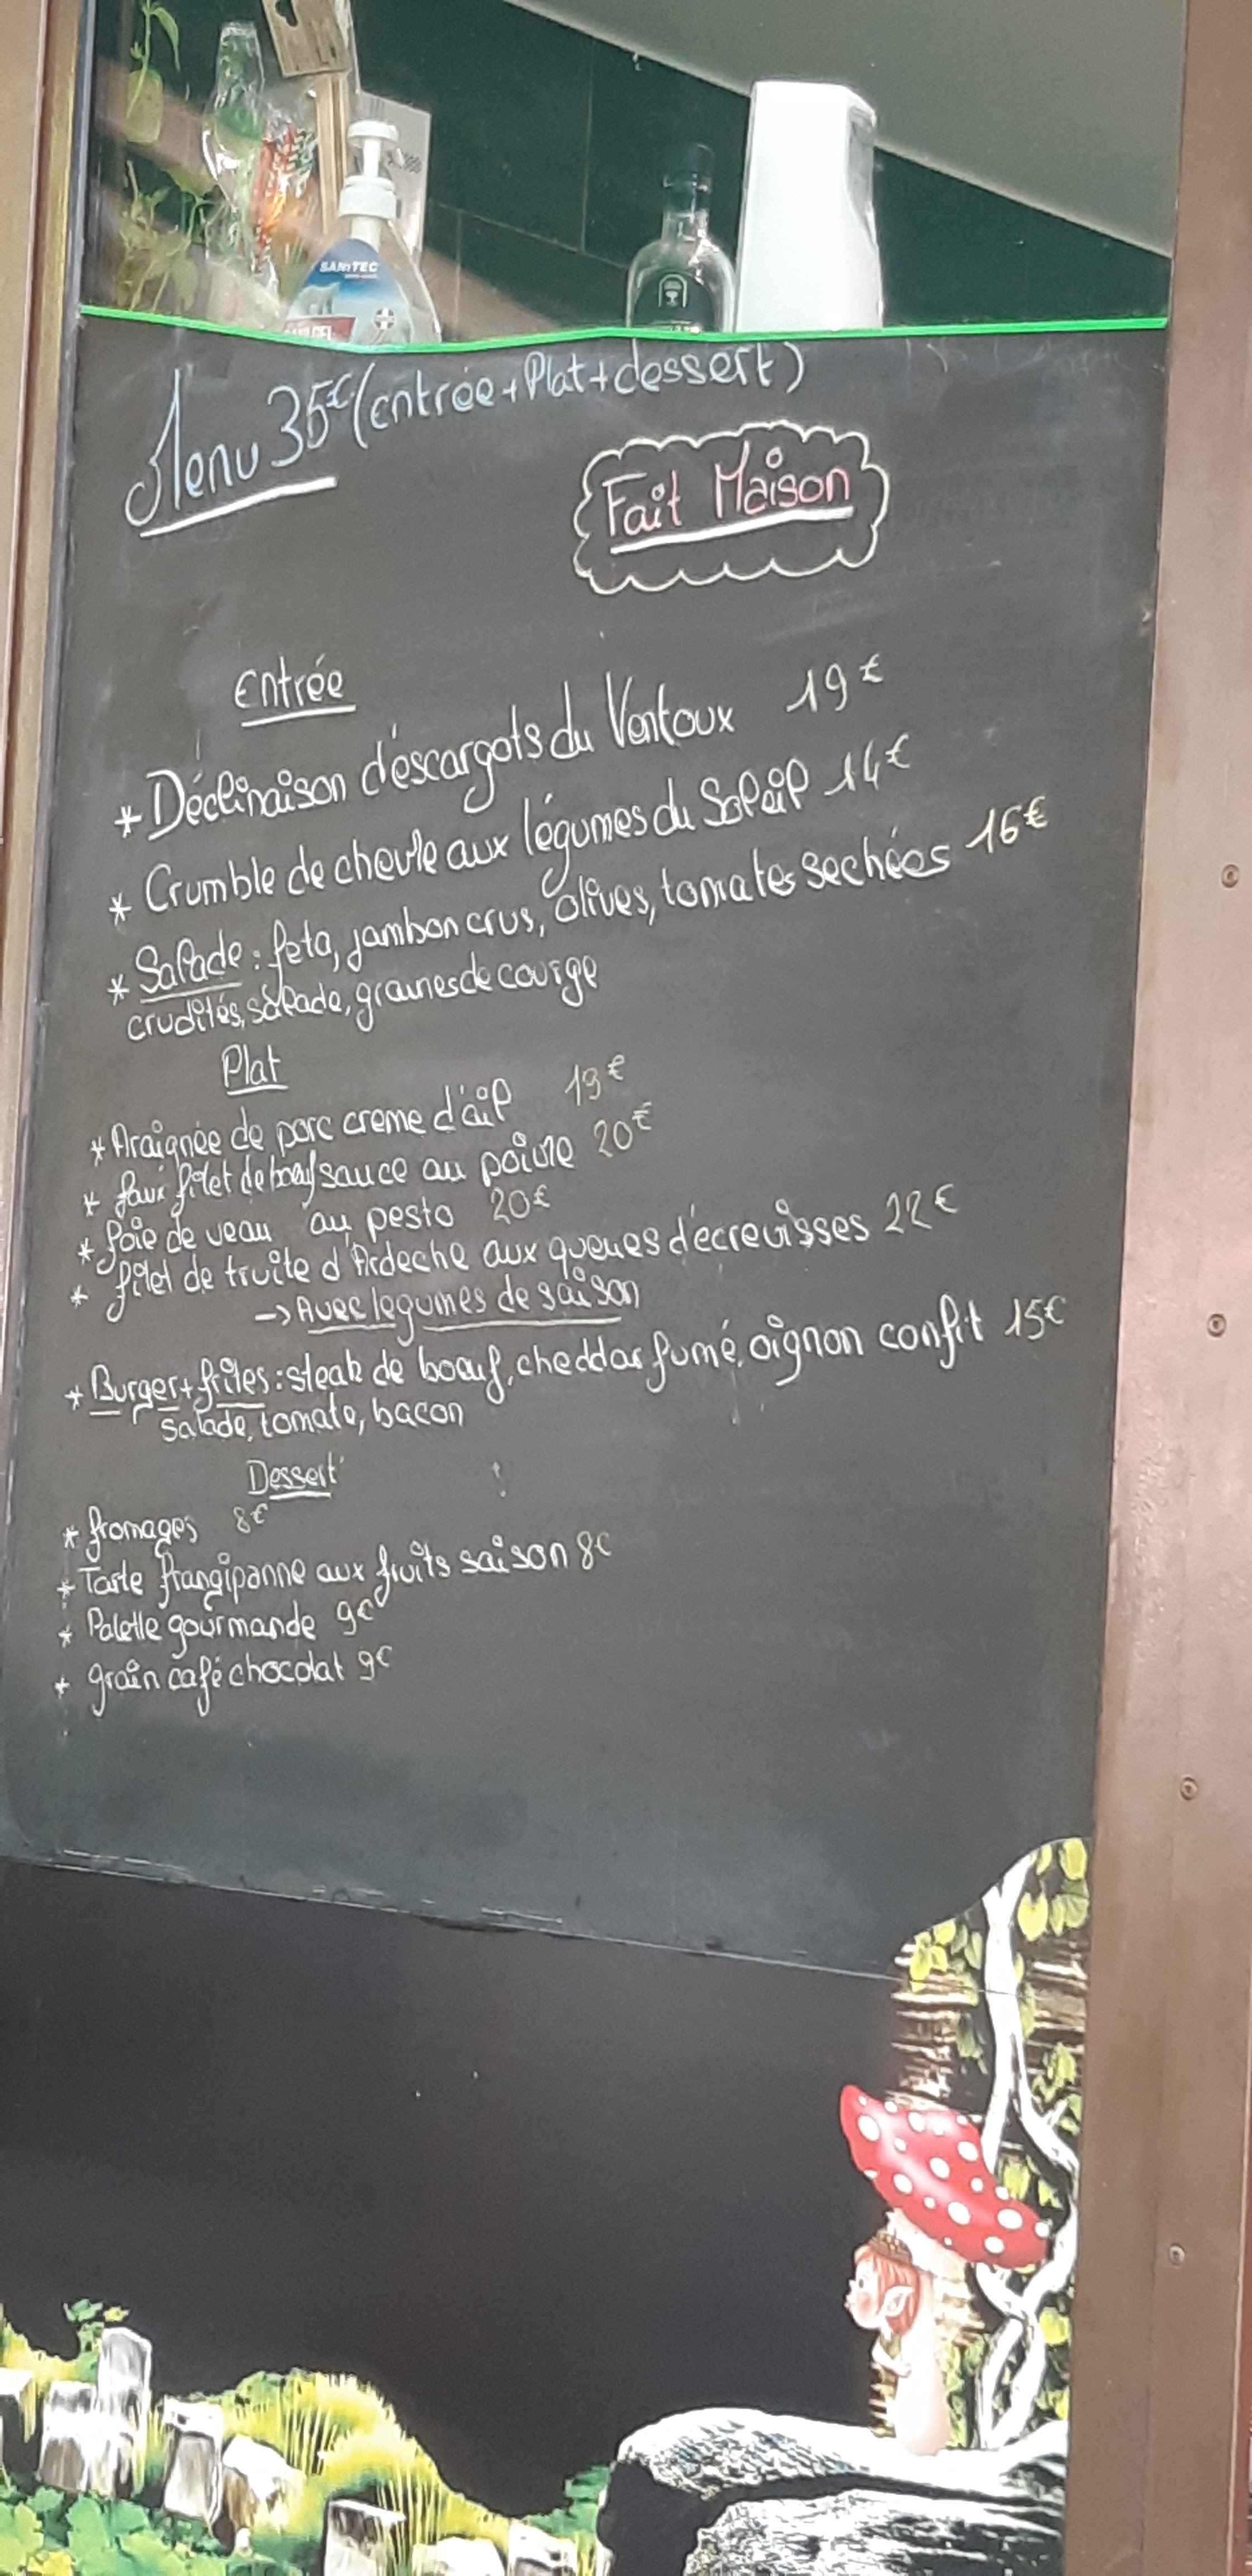 SANITEC
GEL
Menu 35€ (entrée + Plat + dessert)
Fait Maison
Entrée
* Déclinaison d'escargots du Ventoux 19€
* Crumble de chevre aux légumes du Soleil 14€
* Salade : feta, jambon crus, olives, tomates sechées 16€
crudités, salade, graines de courge
Plat
* Araignée de porc creme d'ail 19€
* faux filet de bœuf sauce au poivre 20€
* foie de veau au pesto 20€
* filet de truite d'Ardeche aux queues d'écrevisses 22€
-> Avec legumes de saison
* Burger + frites : steak de bœuf, cheddar fumé, oignon confit 15€
Salade, tomate, bacon
Dessert
* fromages 8€
* Tarte frangipanne aux fruits saison 8€
* Palette gourmande 9€
* grain café chocolat 9€